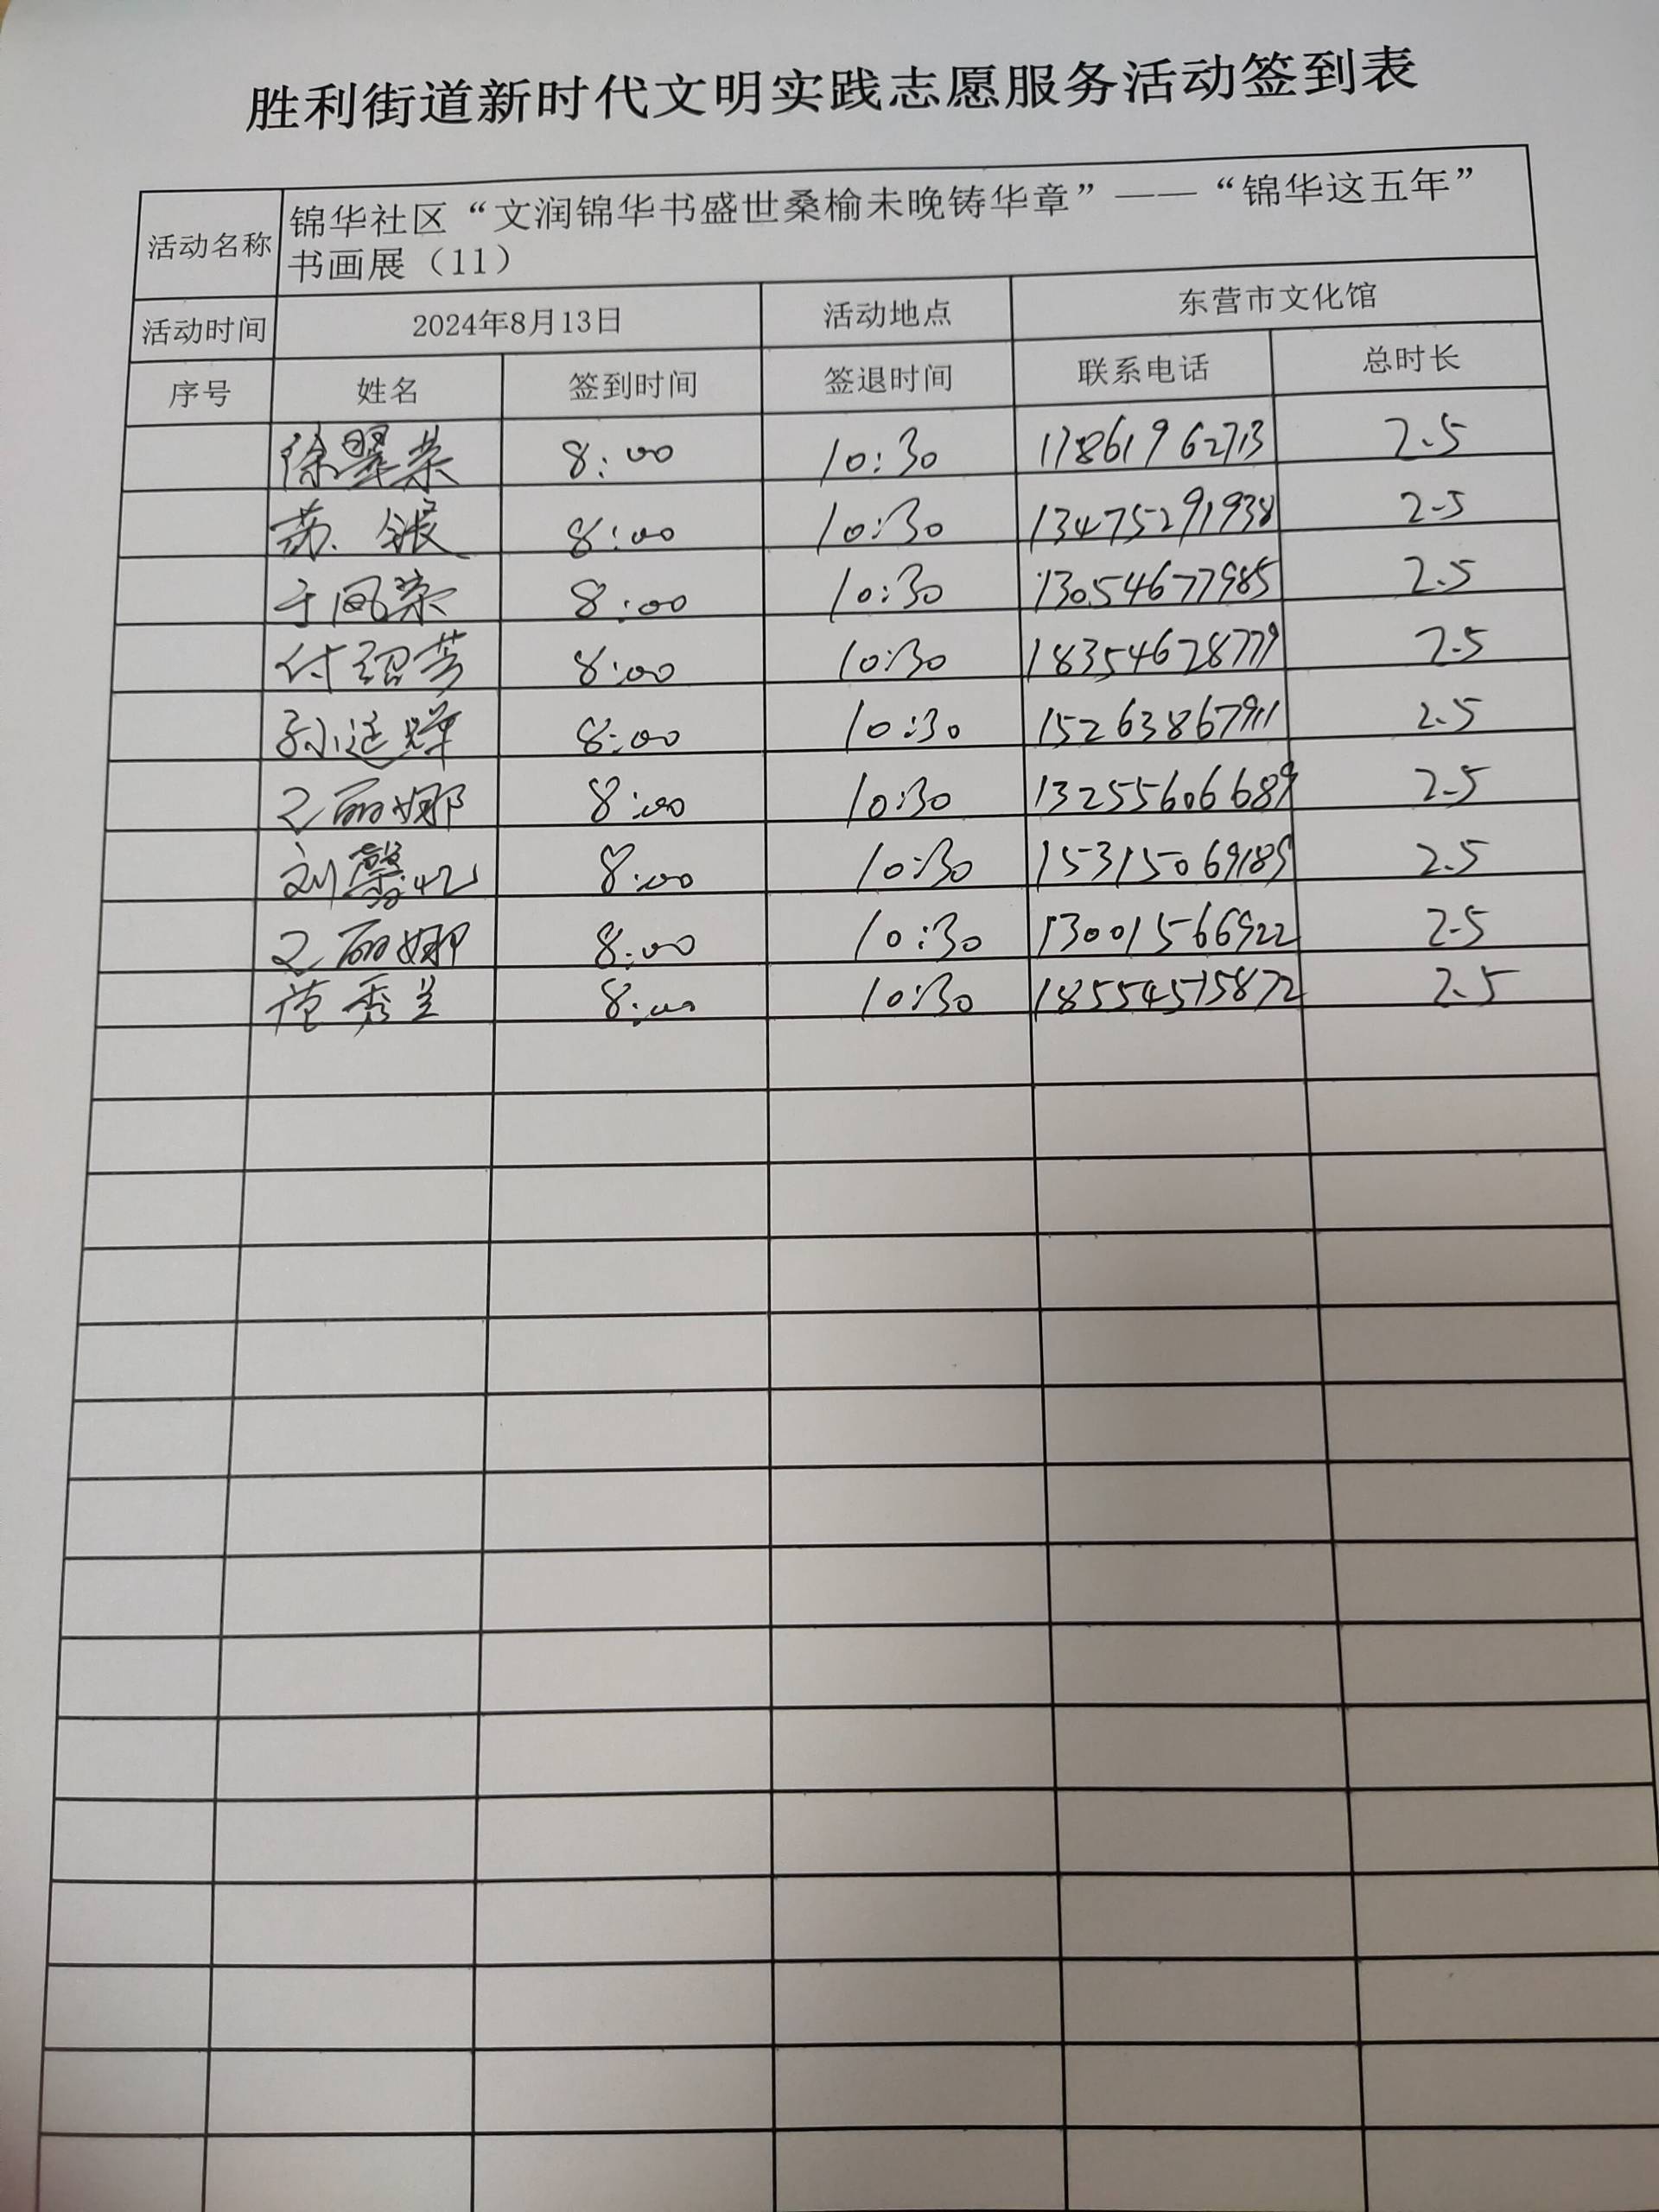 胜利街道新时代文明实践志愿服务活动签到表
活动名称 锦华社区“文润锦华书盛世桑榆未晚铸华章”——“锦华这五年”
书画展（11）
活动时间 2024年8月13日 活动地点 东营市文化馆
序号 姓名 签到时间 签退时间 联系电话 总时长
徐翠荣 8:00 10:30 17861962713 2.5
苏银 8:00 10:30 13475291938 2.5
于凤荣 8:00 10:30 13054677985 2.5
付绍芳 8:00 10:30 18354628779 2.5
孙延 8:00 10:30 15263867911 2.5
丽娜 8:00 10:30 13255606689 2.5
刘馨忆 8:00 10:30 15315069189 2.5
丽娜 8:00 10:30 13001566922 2.5
范秀兰 8:00 10:30 18554515872 2.5